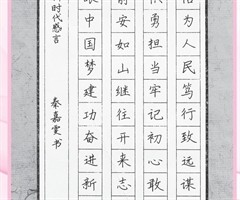 为人民笃行致远谋
勇担当牢记初心敢
安如山继往开来志
中国梦建功奋进新
时代感言
秦嘉雯书